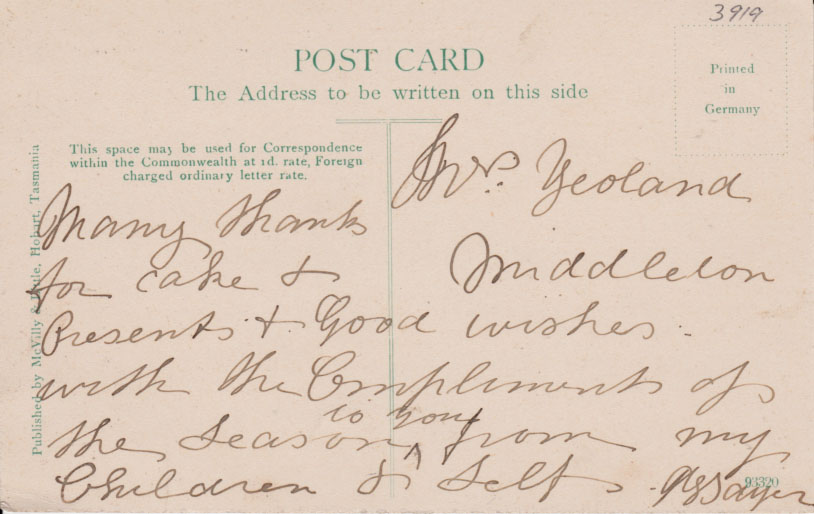 3919
POST CARD
The Address to be written on this side
Printed
in
Germany
This space may be used for Correspondence
within the Commonwealth at 1d. rate, Foreign
charged ordinary letter rate.
Published by McVilly & Little, Hobart, Tasmania
Mrs. Yeoland
Middleton
Many thanks
for cake &
Presents & Good wishes.
with the Compliments of
the Season ^ to you from my
Children & Self.
93320